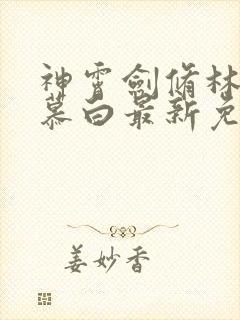 神霄剑脩林
慕白最新免
姜妙香